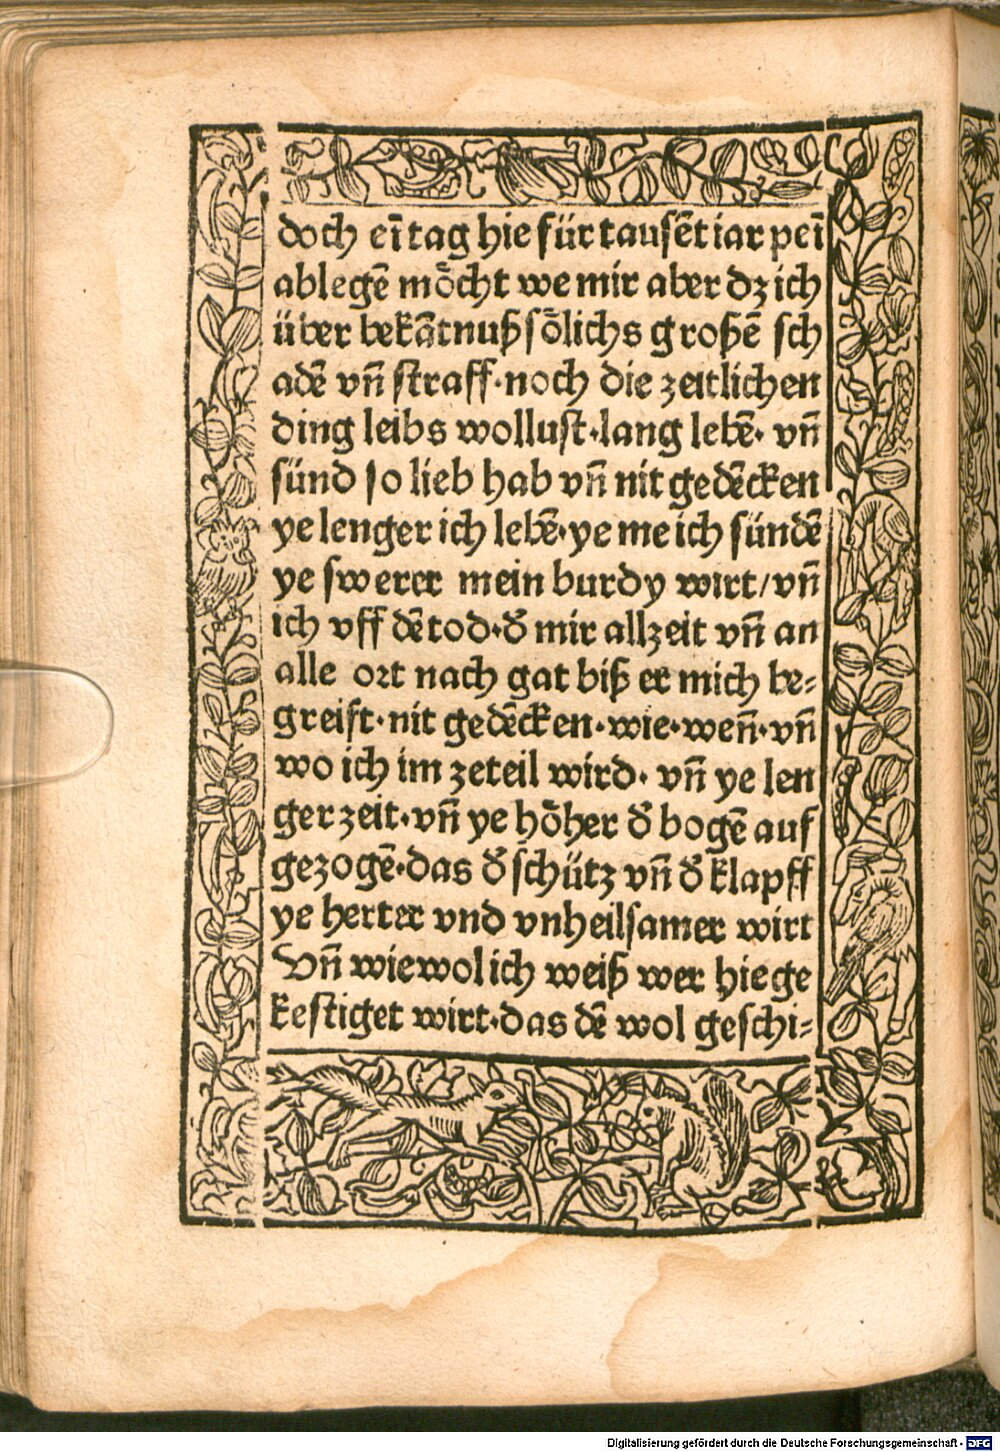 doch eī tag hie für tausēt iar peī
ablegē mo̊cht we mir aber dz ich
über bekātnuß so̊lichs großē sch
adē vn̄ straff·noch die zeitlichen
ding leibs wollust·lang lebē· vn̄
sünd so lieb hab vn̄ nit gedēcken
ye lenger ich lebē·ye me ich sündē
ye swerer mein burdy wirt/vn̄
ich vff dē tod·d̄ mir allzeit vn̄ an
alle ort nach gat biß er mich be⸗
greift·nit gedēcken·wie·wen̄·vn̄
wo ich im zeteil wird· vn̄ ye len
ger zeit·vn̄ ye ho̊her d̄ bogē auf
gezogē·das d̄ schütz vn̄ d̄ klapff
ye herter vnd vnheilsamer wirt
Vn̄ wiewol ich weiß wer hie ge
kestiget wirt·das dē wol geschi⸗
Digitalisierung gefördert durch die Deutsche Forschungsgemeinschaft - DFG